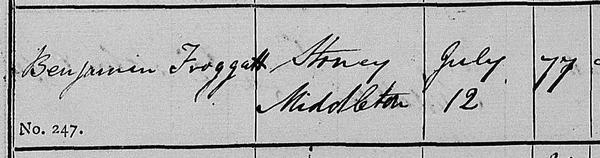 Benjamin Froggatt Stoney July 77
Middleton 12
No. 247.